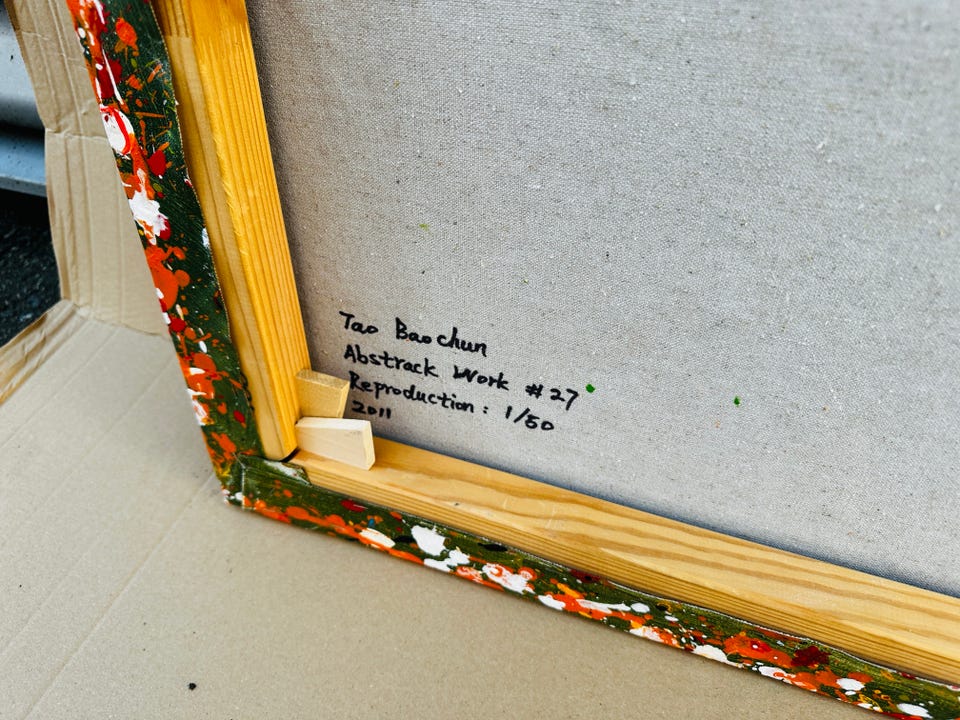 Tao Baochun
Abstrack Work #27
Reproduction: 1/50
2011